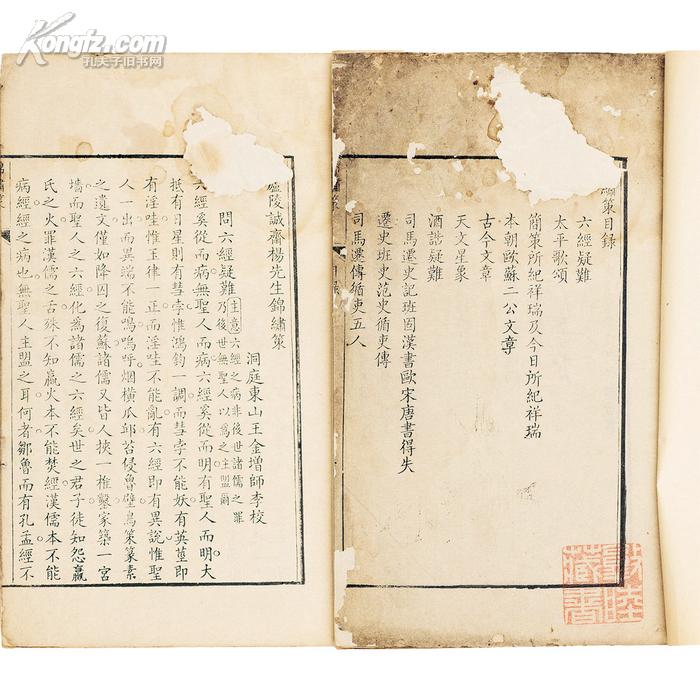 Kongfz.com
孔夫子旧书网
策目録
六經疑難
太平歌頌
簡策所紀祥瑞及今日所紀祥瑞
本朝歐蘇二公文章
古今文章
天文星象
酒誥疑難
司馬遷史記班固漢書歐宋唐書得失
遷史班史范史循吏傳
司馬遷傳循吏五人
藏書
廬陵誠齋楊先生錦繡策
洞庭東山王金增師李校
問六經疑難
主意六經之病非後世諸儒之罪
乃後世無聖人以為之主盟爾
六經奚從而病無聖人而病六經奚從而明有聖人而明大
抵有日星則有彗孛惟鴻鈞一調而彗孛不能妖有英莖即
有淫哇惟玉律一正而淫哇不能亂有六經即有異說惟聖
人一出而異端不能鳴嗚呼烟橫瓜邱苔侵魯壁鳥策篆素
之遺文僅如降囚之復蘇諸儒又皆人挾一椎鑿家築一宮
墻而聖人之六經化為諸儒之六經矣世之君子徒知怨嬴
氏之火罪漢儒之舌殊不知嬴火本不能焚經漢儒本不能
病經經之病也無聖人主盟之耳何者鄒魯而有孔孟經不